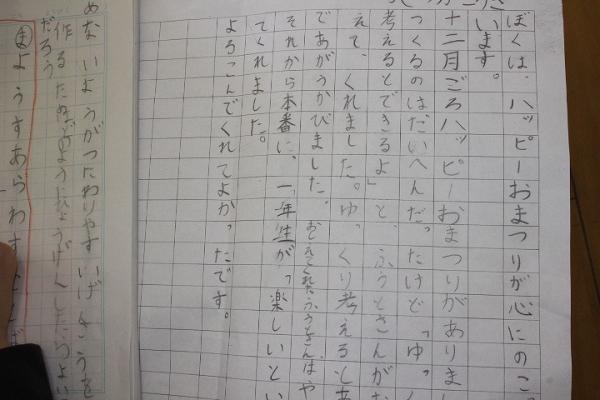 ぼくは、ハッピーおまつりが心にのこ
います。
十二月ごろハッピーおまつりがありまし
つくるのはだいへんだったけど「ゆっ
考えるとできるよ」と、ふうとさんがお
えて、くれました。ゆっくり考えるとあ
であがうかびました。おしえてくれたふうとさんはや
それから本番に、一年生が「楽しいとい
てくれました。
よろこんでくれてよかったです。
めないようがつたわりやすいげんこうを
作るためどのようなひょうげんしたらよい
だろう
まようすあらわす